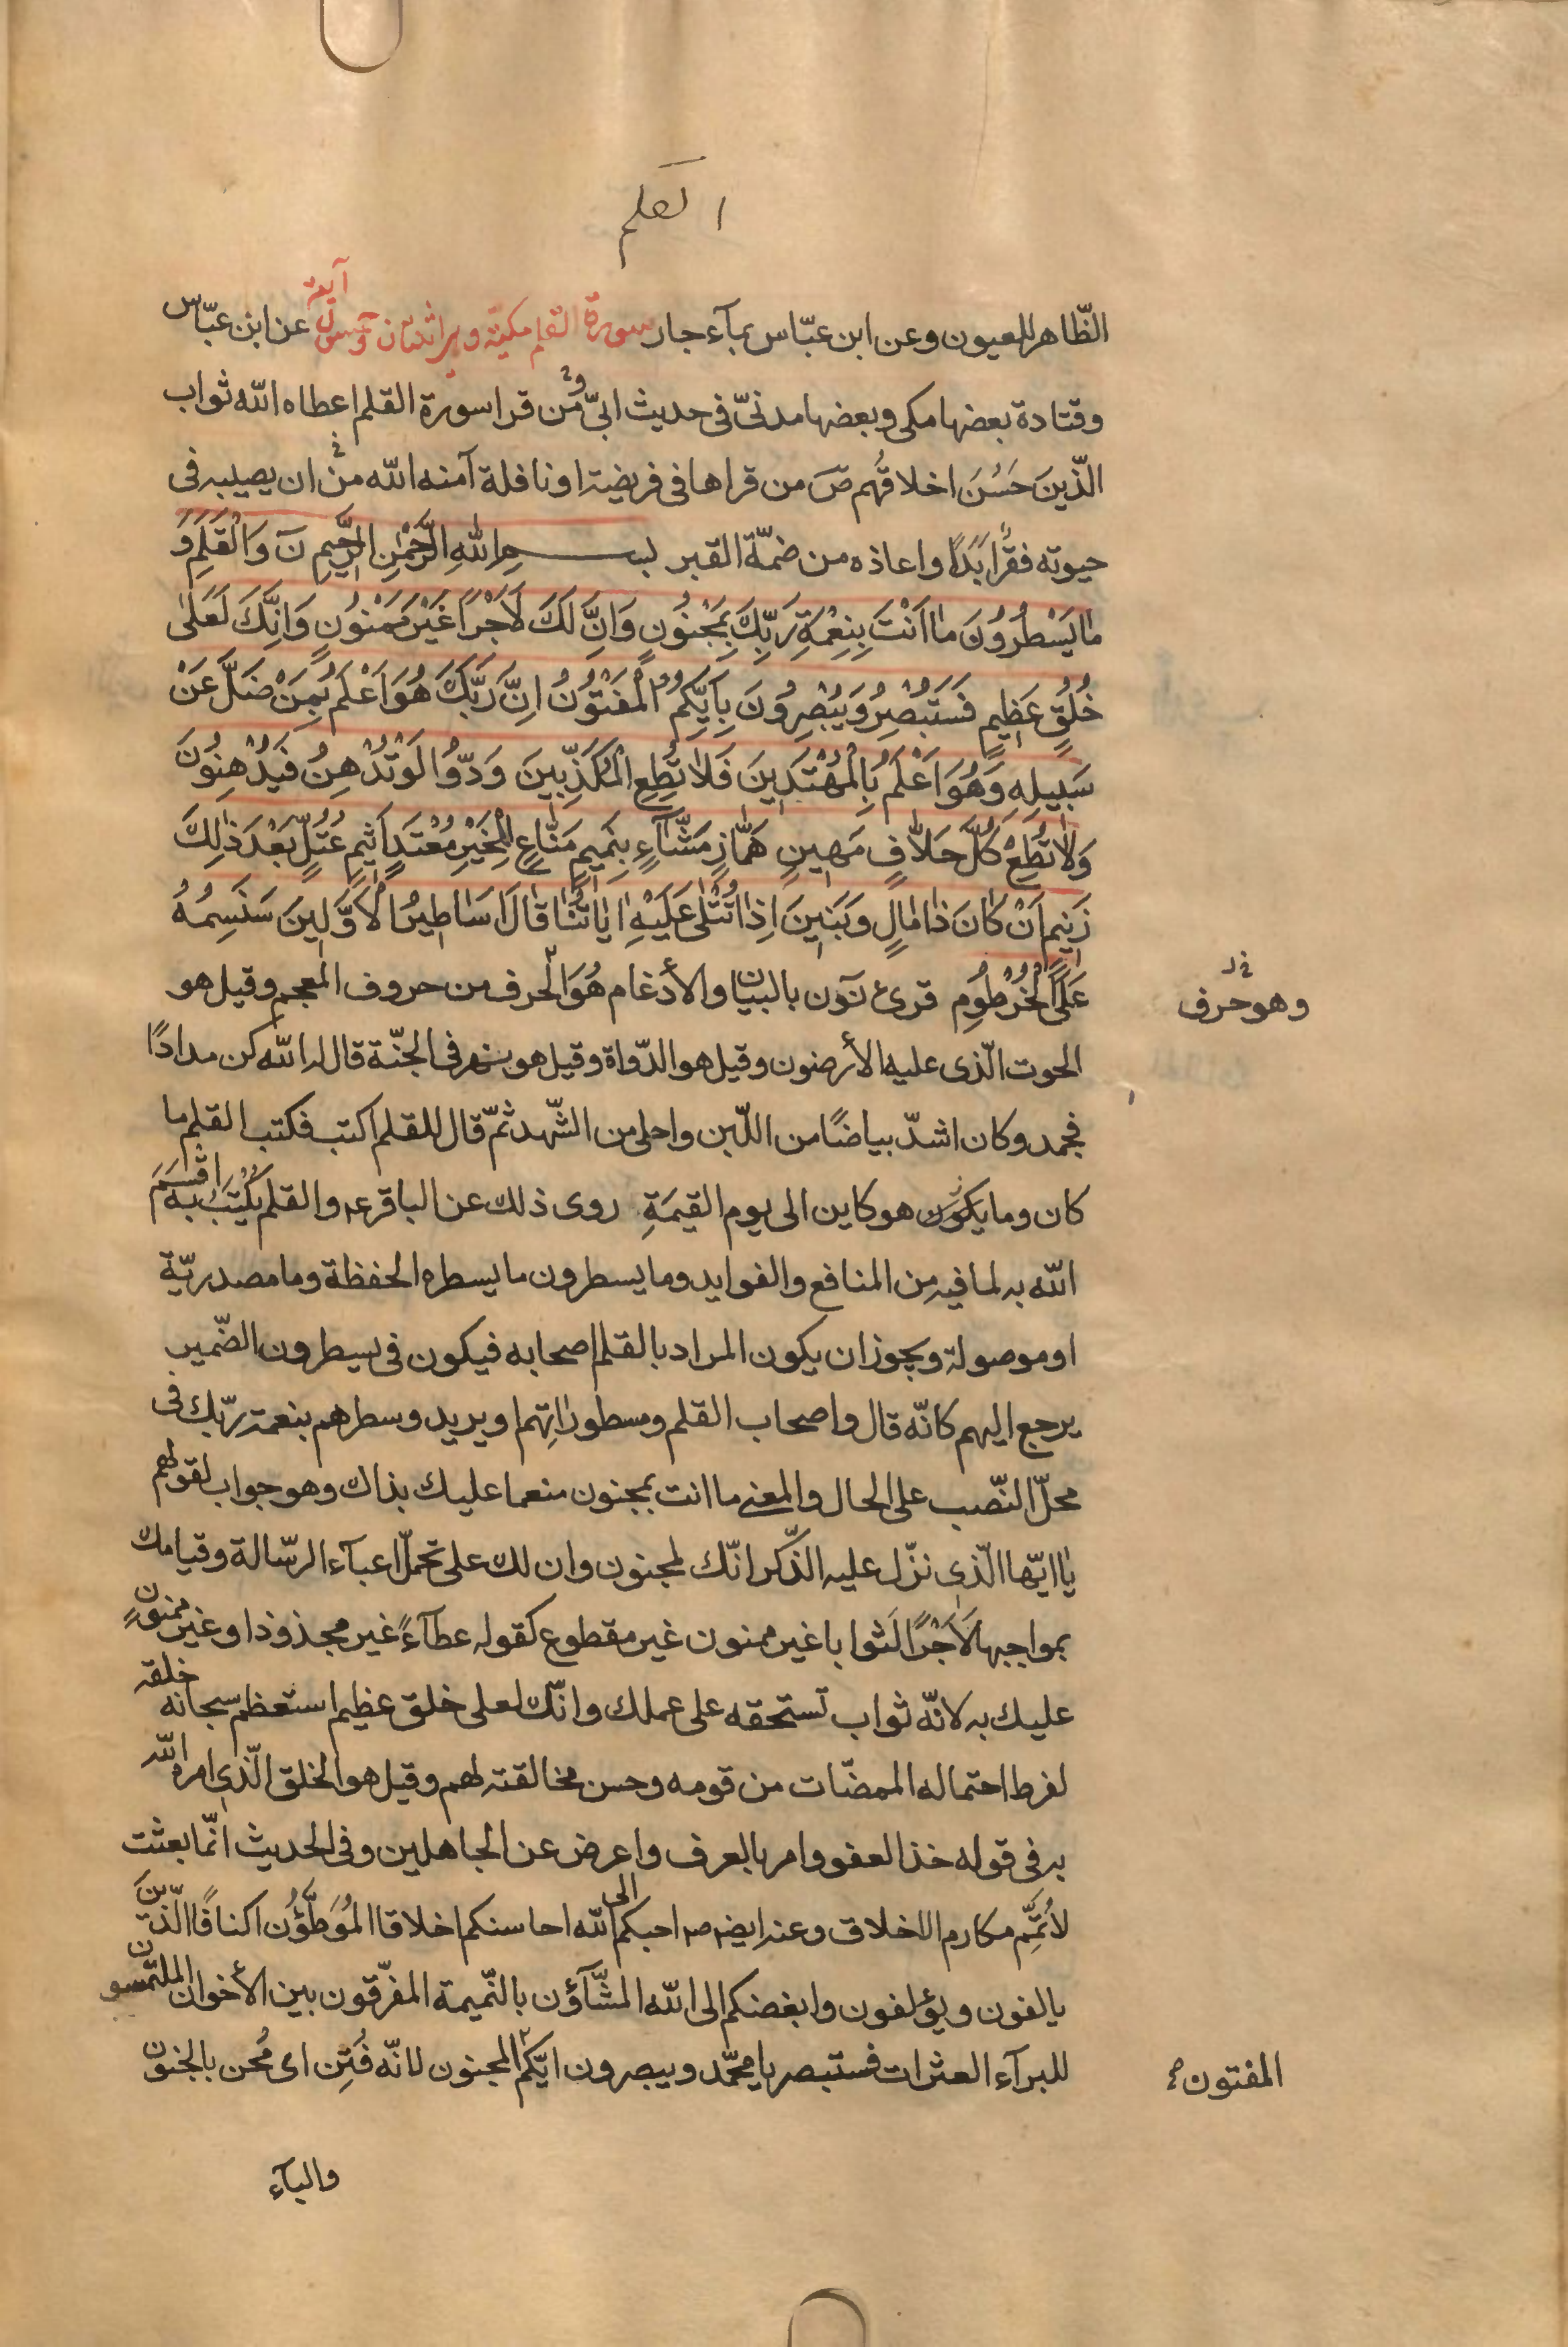 القلم
الظّاهر للعيون وعن ابن عبّاس بمآء جار سورة القلم مكية وهى اثنتان وخمسون آية عن ابن عبّاس
وقتادة بعضها مكى وبعضها مدنىّ فى حديث ابىّ ومن قرا سورة القلم اعطاه الله ثواب
الّذينَ حَسُنَ اخلاقُهم صَ من قراها فى فريضة او نافلة آمنه الله من ان يصيبه فى
حيوته فقرًا ابَدًا واعاذه من ضمّة القبر بســـــمِ اللهِ الرَّحْمٰنِ الرَّحِيمِ نَ وَالْقَلَمِ وَ
مٰا يَسْطُرُونَ مٰا اَنْتَ بِنِعْمَةِ رَبِّكَ بِمَجْنُونٍ وَاِنَّ لَكَ لَاَجْرًا غَيْرَ مَمْنُونٍ وَاِنَّكَ لَعَلٰى
خُلُقٍ عَظِيمٍ فَسَتُبْصِرُ وَيُبْصِرُونَ بِاَيِّكُمُ الْمَفْتُونُ اِنَّ رَبَّكَ هُوَ اَعْلَمُ بِمَنْ ضَلَّ عَنْ
سَبِيلِهِ وَهُوَ اَعْلَمُ بِالْمُهْتَدِينَ فَلٰا تُطِعِ الْمُكَذِّبِينَ وَدُّوا لَوْ تُدْهِنُ فَيُدْهِنُونَ
وَلٰا تُطِعْ كُلَّ حَلّٰافٍ مَهِينٍ هَمّٰازٍ مَشّٰآءٍ بِنَمِيمٍ مَنّٰاعٍ لِلْخَيْرِ مُعْتَدٍ اَثِيمٍ عُتُلٍّ بَعْدَ ذٰلِكَ
زَنِيمٍ اَنْ كٰانَ ذٰا مٰالٍ وَبَنِينَ اِذٰا تُتْلٰى عَلَيْهِ اٰيٰاتُنٰا قٰالَ اَسٰاطِيرُ الْاَوَّلِينَ سَنَسِمُهُ
عَلَى الْخُرْطُومِ قرئ نٓون بالبيان والأدغام هُوَ الحرف من حروف المعجم وقيل هو
وهو حرف
الحوت الّذى عليه الأرضون وقيل هو الدّواة وقيل هو نهر فى الجنّة قال له الله كن مدادًا
فجمد وكان اشدّ بياضًا من اللّبن واحلى من الشّهد ثمّ قال للقلم اكتب فكتب القلم ما
كان وما يكون هو كاين الى يوم القيمَةِ روى ذلك عن الباقر ع والقلم يُكتَبُ به اقسَمَ
الله به لما فيه من المنافع والفوايد وما يسطرون ما يسطره الحفظة وما مصدريّة
او موصولة ويجوز ان يكون المراد بالقلم اصحابه فيكون فى يسطرون الضّمير
يرجع اليهم كانّه قال واصحاب القلم ومسطوراتِهم او يريد وسطرهم بنعمة ربّك فى
محلّ النّصب على الحال والمعنى ما انت بمجنون منعما عليك بذلك وهو جواب لقولهم
يٰا ايّها الّذى نزّل عليه الذّكر انّك لمجنون وان لك على تحمّل اعبآء الرّسالة وقيامك
بمواجبها لَاَجْرًا لَثوابا غير ممنون غير مقطوع كقوله عطآءً غير مجذوذ او غير ممنونٍ
عليك به لانّه ثواب تستحقه على عملك وانّك لعلى خلق عظيم استعظم سبحانه خلقه
لفرط احتماله الممضّات من قومه وحسن مخالقته لهم وقيل هو الخلق الّذى امره الله
به فى قوله خذ العفو وامر بالعرف واعرض عن الجاهلين وفى الحديث انّما بعثت
لأُتمِّم مكارم الاخلاق وعنه ايضا ص احبكم الى الله احاسنكم اخلاقا المُوَطَّؤُن اكنافًا الّذين
يالفون ويؤلفون وابغضكم الى الله المشّآؤن بالنّميمة المفرّقون بين الأخوان الملتمسون
للبرآء العثرات فستبصر يا محمّد ويبصرون ايّكم المجنون لانّه فُتِن اى مُحن بالجنون
المفتون
والبآء